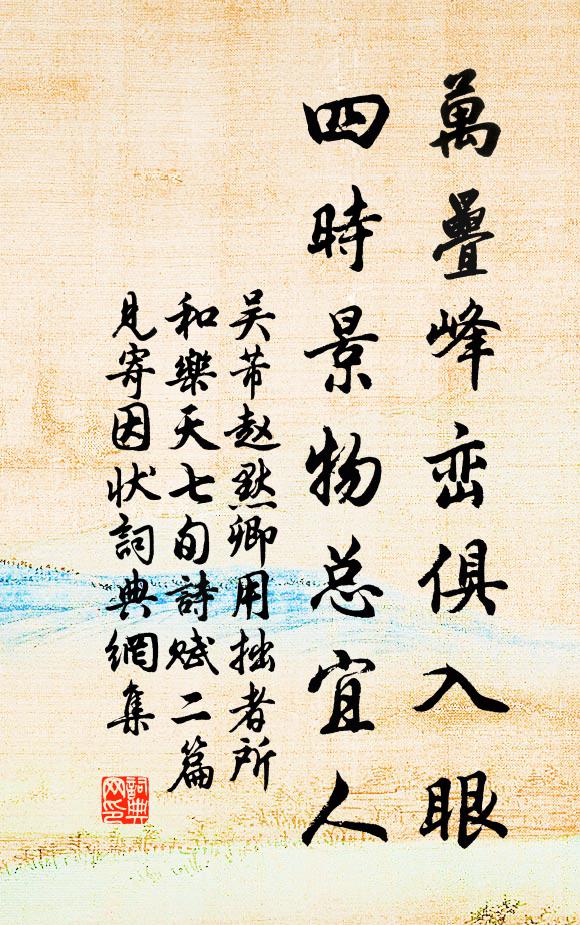 萬疊峰峦俱入眼
四時景物总宜人
吴芾赵黙卿用拙者所
和樂天七旬詩赋二篇
見寄因状詞典網集
詞典网印